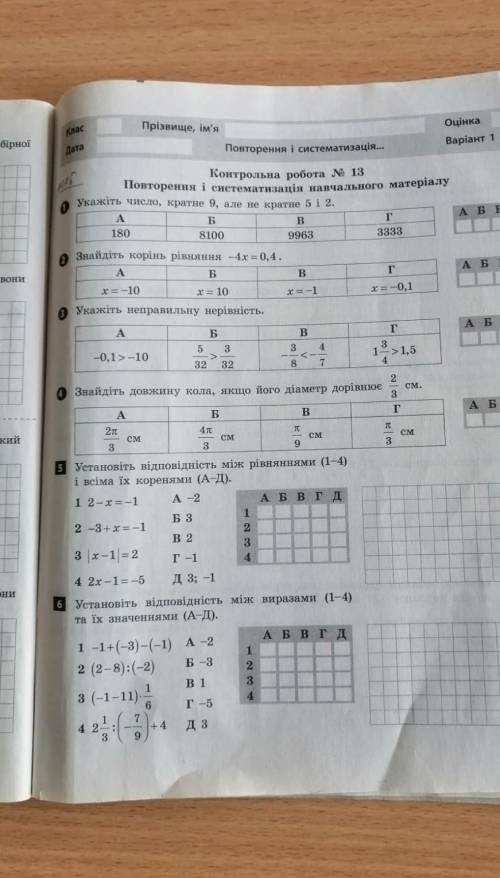 бірної
вони
кий
они
Клас
Прізвище, ім'я
Оцінка
Дата
Повторення і систематизація...
Варіант 1
Контрольна робота № 13
Повторення і систематизація навчального матеріалу
1 Укажіть число, кратне 9, але не кратне 5 і 2.
А Б В Г
180 8100 9963 3333
А Б В
2 Знайдіть корінь рівняння −4x = 0,4.
А Б В Г
x = −10 x = 10 x = −1 x = −0,1
А Б
3 Укажіть неправильну нерівність.
А Б В Г
−0,1 > −10 5/32 > 3/32 −3/8 < −4/7 1 3/4 > 1,5
А Б
4 Знайдіть довжину кола, якщо його діаметр дорівнює 2/3 см.
А Б В Г
2π/3 см 4π/3 см π/9 см π/3 см
А Б
5 Установіть відповідність між рівняннями (1–4)
і всіма їх коренями (А–Д).
1 2 − x = −1 А −2
2 −3 + x = −1 Б 3
В 2
3 |x − 1| = 2 Г −1
4 2x − 1 = −5 Д 3; −1
А Б В Г Д
1
2
3
4
6 Установіть відповідність між виразами (1–4)
та їх значеннями (А–Д).
1 −1 + (−3) − (−1) А −2
2 (2 − 8) : (−2) Б −3
3 (−1 − 11) · 1/6 В 1
Г −5
4 2 1/3 : (−7/9) + 4 Д 3
А Б В Г Д
1
2
3
4